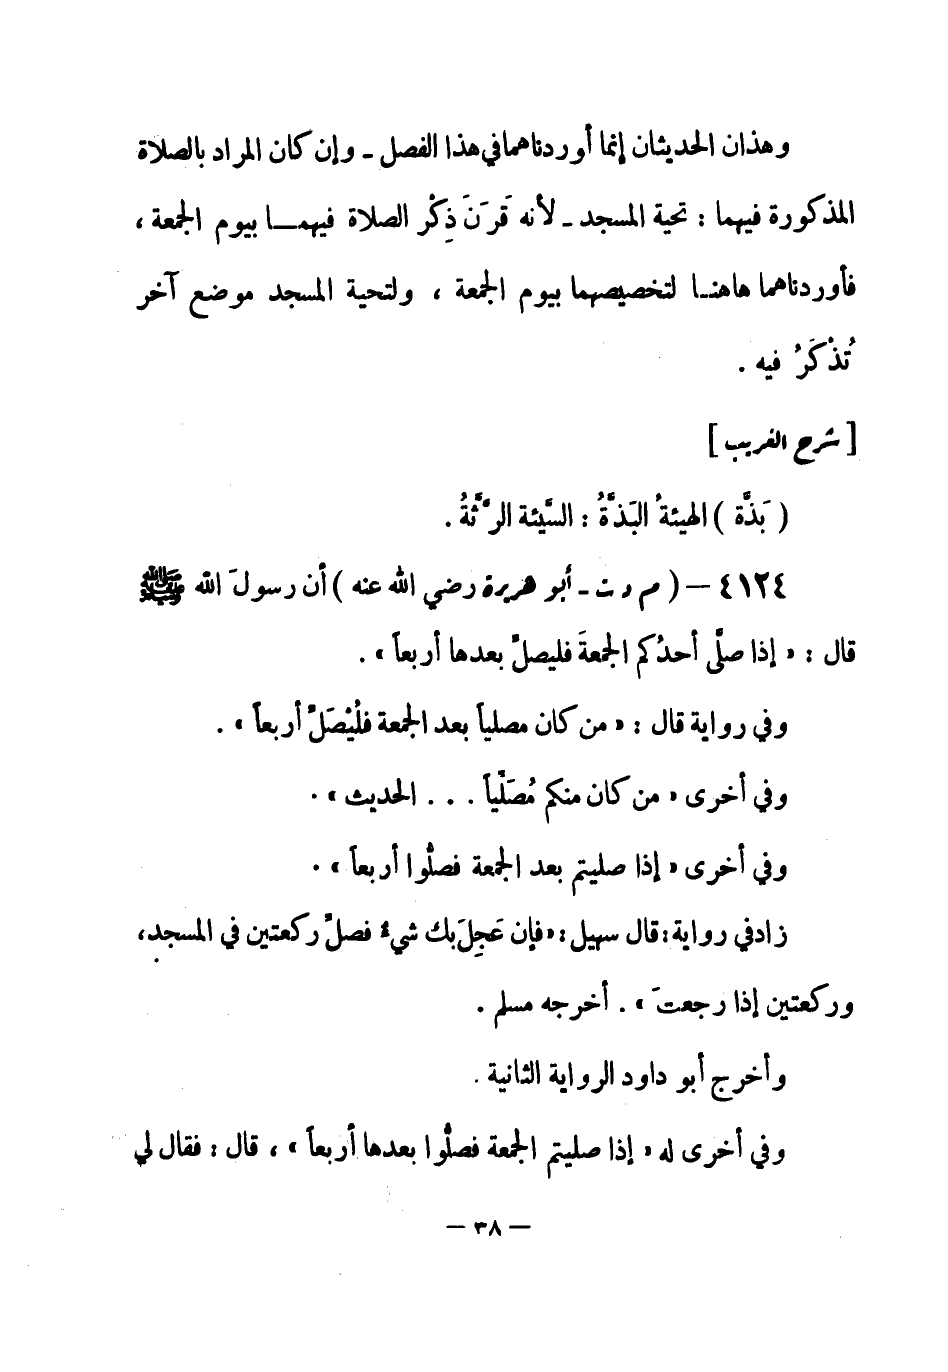 وهذان الحديثان إنما أوردناهما في هذا الفصل ـ وإن كان المراد بالصلاة
المذكورة فيهما : تحية المسجد ـ لأنه قَرَنَ ذِكْر الصلاة فيهمـــا بيوم الجمعة ،
فأوردناهما هاهنـا لتخصيصهما بيوم الجمعة ، ولتحية المسجد موضع آخر
تُذْكَرُ فيه .
[ شرح الغريب ]
( بَذَّة ) الهيئةُ البَذَّةُ : السَّيئة الرَّثَّةُ .
٤١٢٤ – ( م د ت ـ أبو هريرة رضي الله عنه ) أن رسولَ الله ﷺ
قال : « إذا صلَّى أحدُكم الجمعةَ فليصلِّ بعدها أربعاً » .
وفي رواية قال : « من كان مصلياً بعد الجمعة فلْيُصَلِّ أربعاً » .
وفي أخرى « من كان منكم مُصَلّياً . . . الحديث » .
وفي أخرى « إذا صليتم بعد الجمعة فصلُّوا أربعاً » .
زاد في رواية : قال سهيل : « فإن عَجِلَ بك شيءٌ فصلِّ ركعتين في المسجد ،
وركعتين إذا رجعتَ » . أخرجه مسلم .
وأخرج أبو داود الرواية الثانية .
وفي أخرى له « إذا صليتم الجمعة فصلُّوا بعدها أربعاً » ، قال : فقال لي
— ٣٨ —